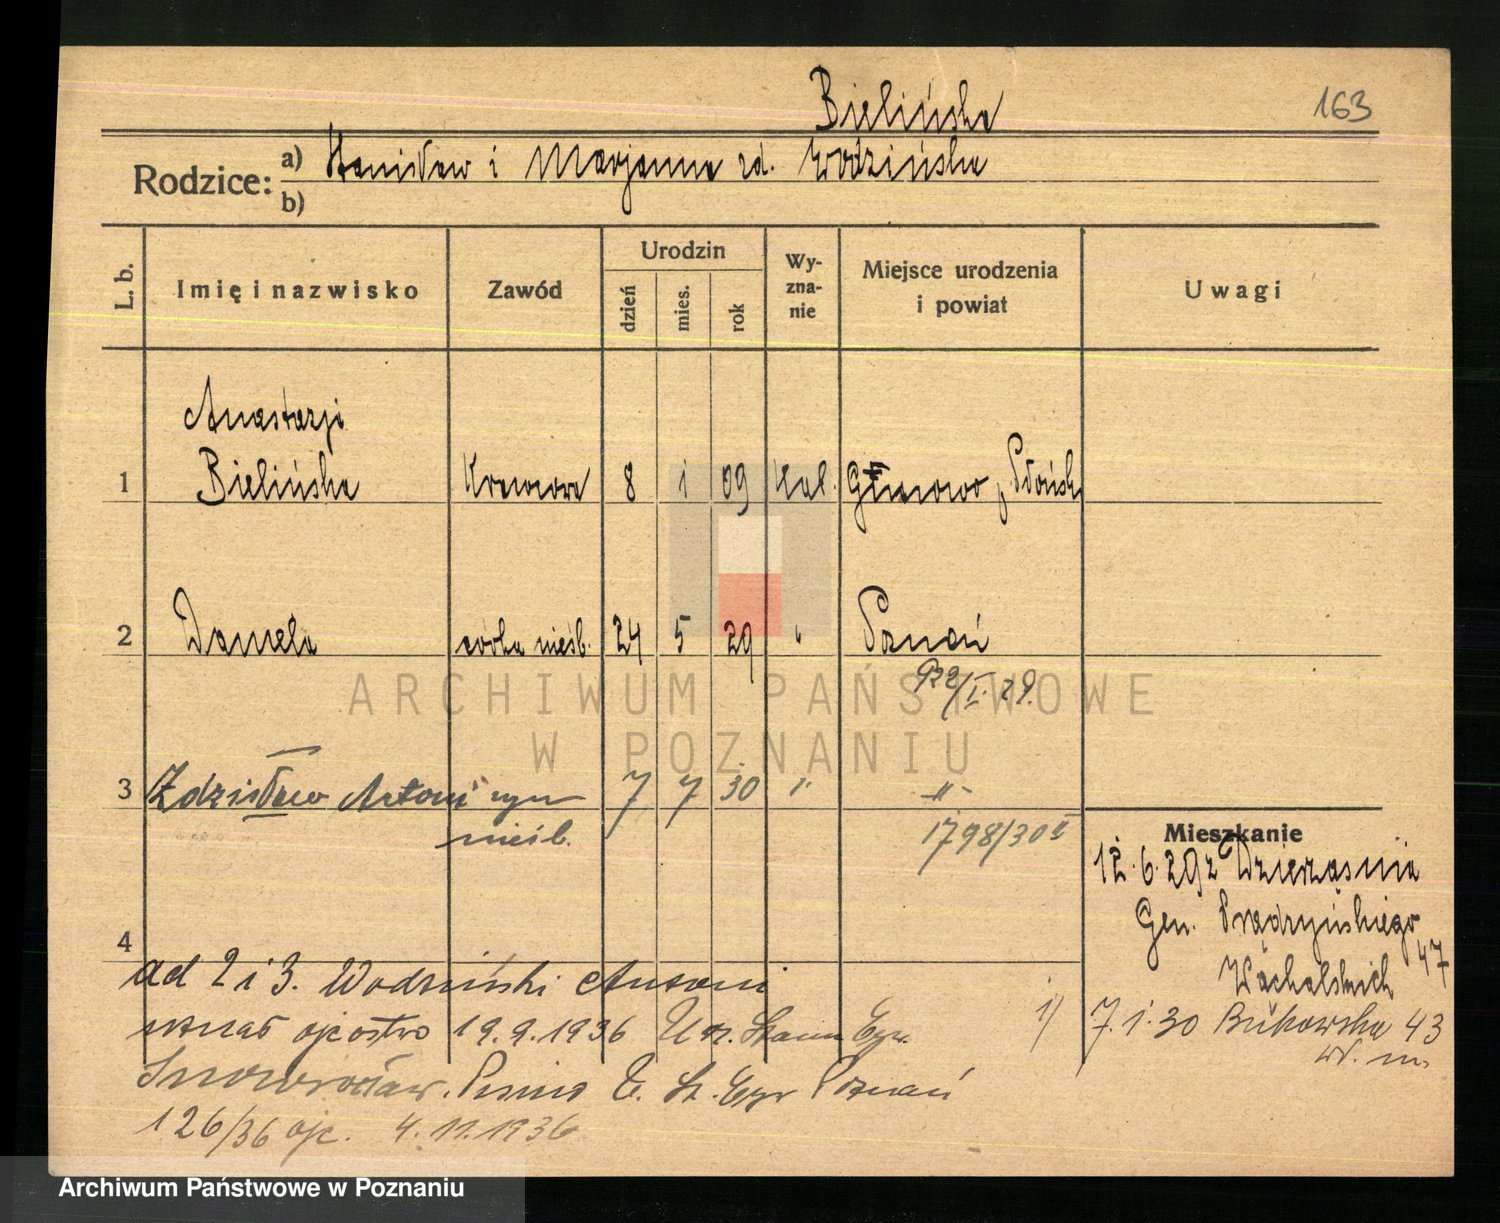 Bielińska
163
Rodzice: a) Stanisław i Marjanna zd. Wodzińska
b)
L. b.
Imię i nazwisko
Zawód
Urodzin
dzień
mies.
rok
Wy-
zna-
nie
Miejsce urodzenia
i powiat
Uwagi
Anastazji
1 Bielińska Krawcowa 8 1 09 kat. Płońsk
2 Daniela córka nieśb. 24 5 29 " Poznań
922/I. 29.
3 Zdzisław Antoni syn 7 7 30 " -"-
nieśb.
1798/30 II
Mieszkanie
12.6.29 z Dzierząśnia
Gen. Prądzyńskiego
47
4
ad 2 i 3. Wodziński Antoni
uznał ojcostwo 19.9.1936 Urz. Stanu Cyw.
1) 7.1.30 Bukowska 43
Inowrocław. Pismo U. St. Cyw Poznań
126/36 ojc. 4.11.1936
ARCHIWUM PAŃSTWOWE
W POZNANIU
Archiwum Państwowe w Poznaniu